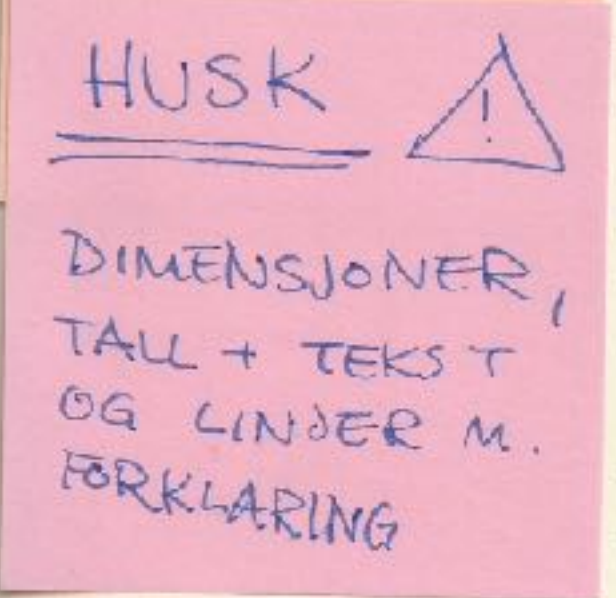 HUSK !
DIMENSJONER,
TALL + TEKST
OG LINJER M.
FORKLARING